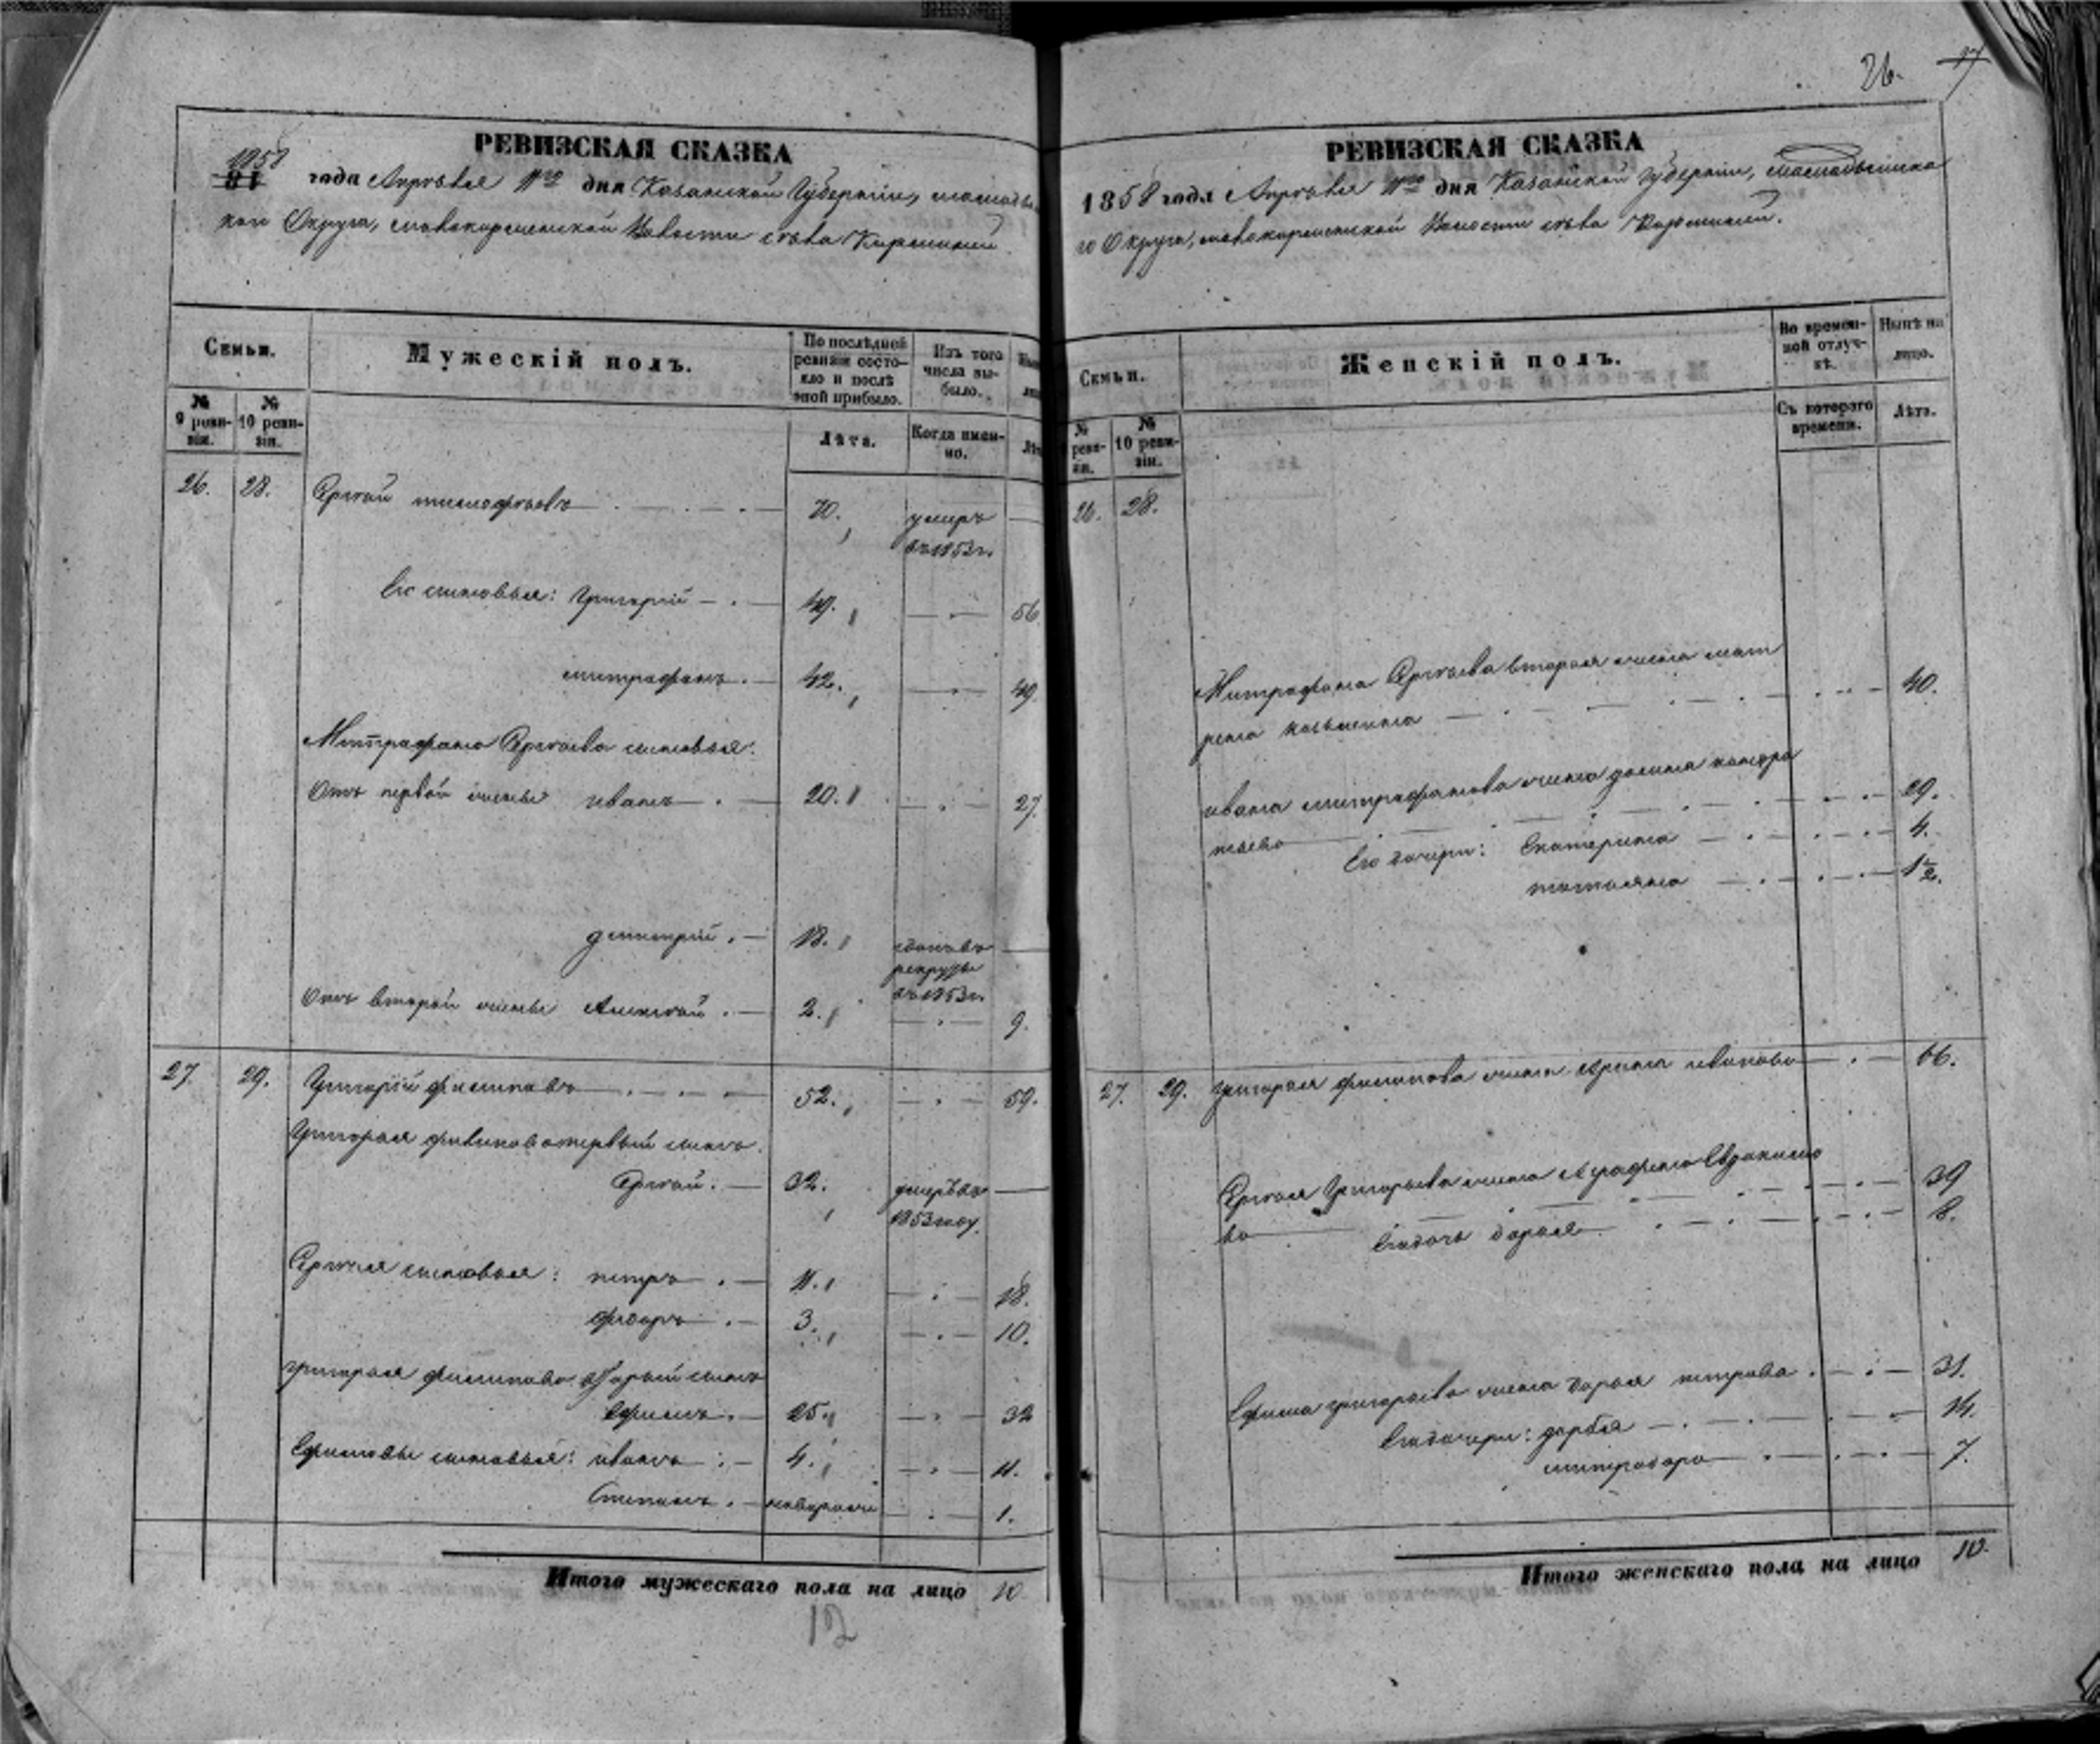 26. 17
РЕВИЗСКАЯ СКАЗКА
1858 года Апреля 11го дня Казанской Губернии,
кой Округа, Волости села
Семьи.
Мужескій полъ.
По послѣдней ревизіи состояло и послѣ оной прибыло.
Изъ того числа выбыло.
№ 9 ревизіи.
№ 10 ревизіи.
Лѣта.
Когда именно.
26. 28. Сергей 70. умеръ
въ 1853 г.
Его сыновья: Григорій — 49. — 56
митрафанъ — 42. — 49
Митрафана Сергеева сыновья:
Отъ первой жены иванъ — 20. — 27.
дмитрій — 18. въ
рекруты
въ 1853 г.
Отъ второй жены Алексей — 2. — 9.
27 29. Григорій филиповъ 52. — 59.
Григорья филипова первый сынъ
Сергей. — 32. умеръ въ
1853 году
Сергея сыновья: петръ — 11. — 18.
федоръ — 3. — 10.
григорья филипова вторый сынъ
Ефимъ. — 25. — 32
Ефимовы сыновья: иванъ — 4. — 11.
Степанъ. — — 1.
Итого мужескаго пола на лицо 10
12
РЕВИЗСКАЯ СКАЗКА
1858 года Апреля 11го дня Казанской Губерніи,
го Округа, Волости села
Семьи.
Женскій полъ.
Во временной отлучкѣ.
Нынѣ на лицо.
№ ревизіи.
№ 10 ревизіи.
Съ котораго времени.
Лѣта.
26. 28.
Митрафана Сергеева вторая жена мат
рена 40.
ивана митрафанова жена
29.
Его дочери: Екатерина — 4.
татьяна — 1½.
27. 29. григорья филипова жена иванова — 66.
Сергея Григорьева жена Аграфена Евдокимо
ва 39
Его дочь дарья 8.
Ефима григорьева жена дарья петрова. — 31.
Его дочери: — 14.
митродора — 7.
Итого женскаго пола на лицо 10.